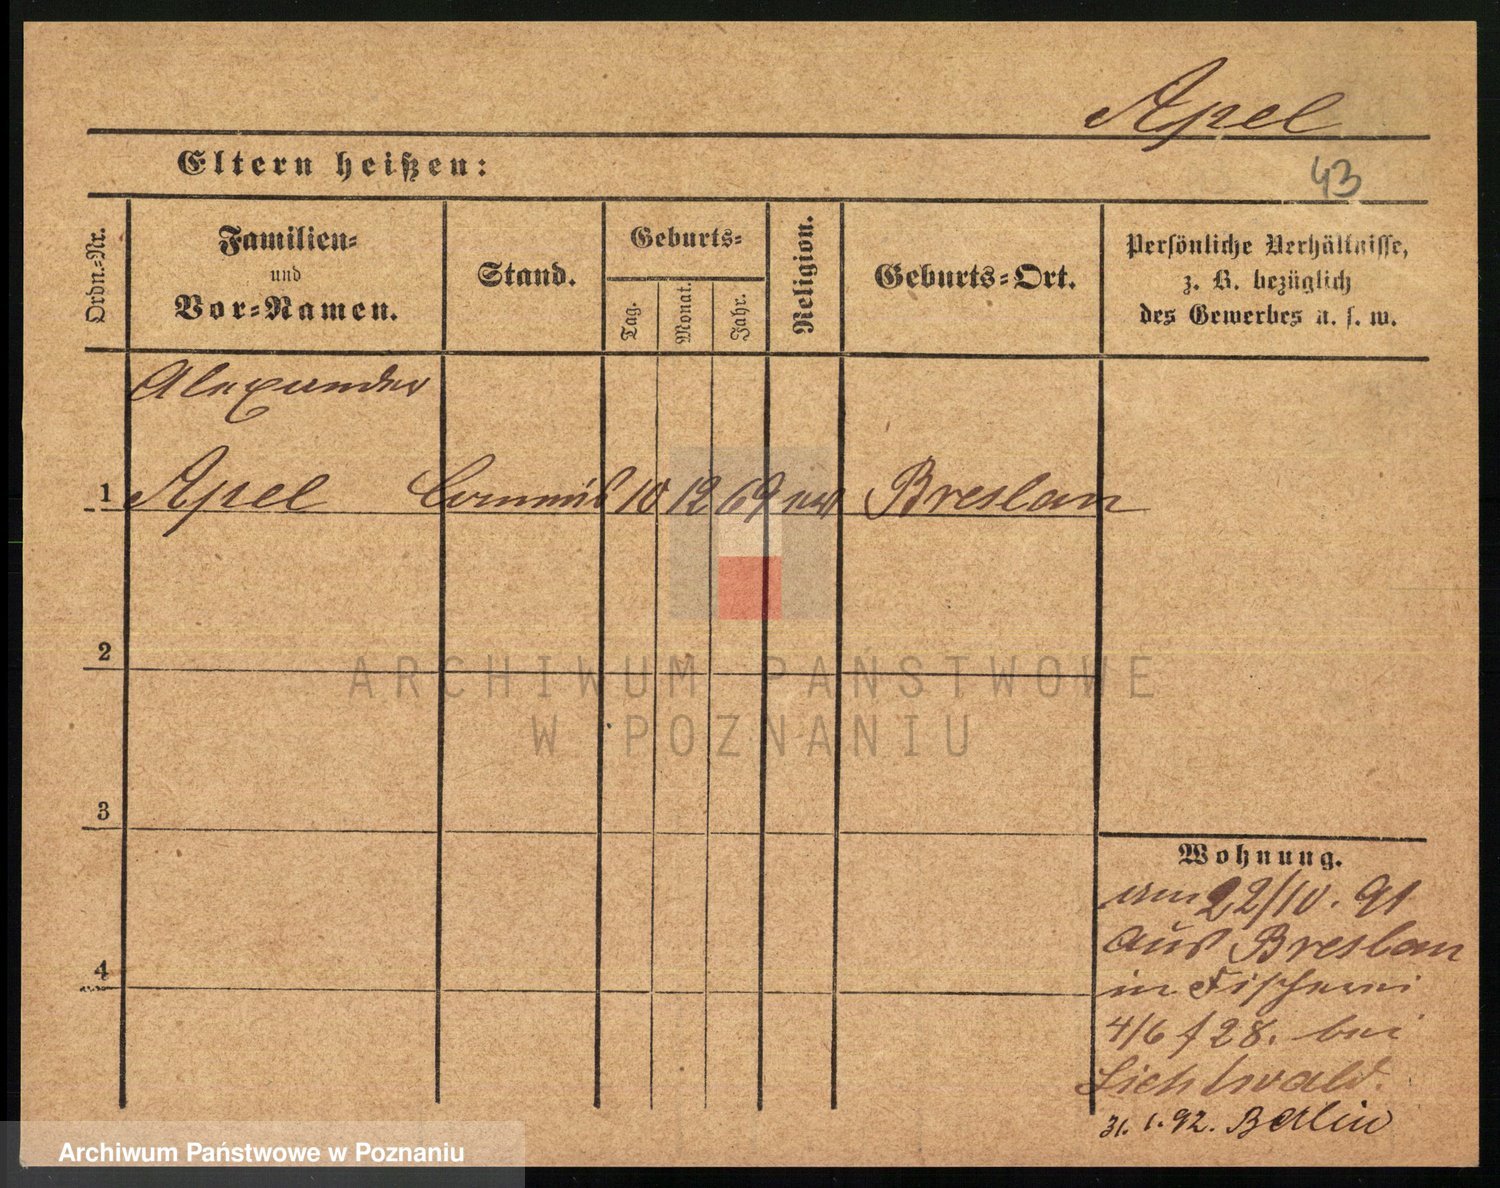 Apel
Eltern heißen:
43
Ordn.-Nr.
Familien-
und
Vor-Namen.
Stand.
Geburts-
Tag.
Monat.
Jahr.
Religion.
Geburts-Ort.
Persönliche Verhältnisse,
z. B. bezüglich
des Gewerbes u. s. w.
Alexander
1 Apel Commis 10 12 69 Breslau
2
3
4
Wohnung.
am 22/10. 91
aus Breslau
in Fischerei
4/6 f 28. bei
Lichtwald.
31. 1. 92. Berlin
ARCHIWUM PAŃSTWOWE
W POZNANIU
Archiwum Państwowe w Poznaniu